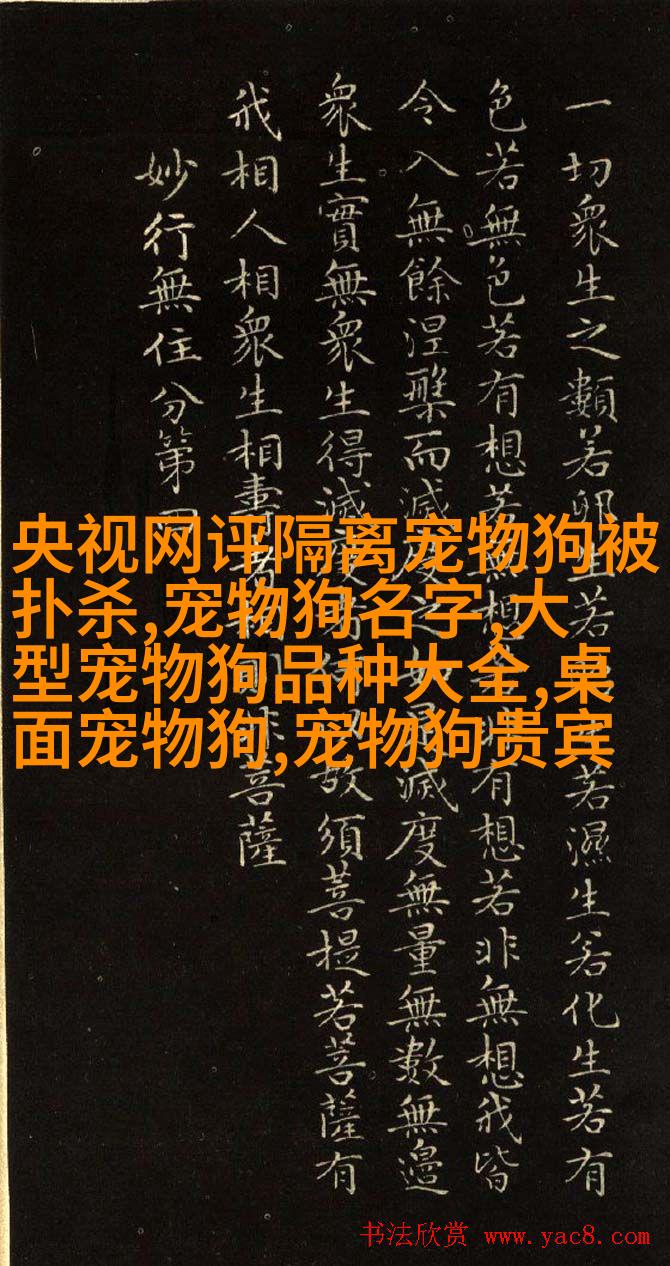 一切衆生之類若卵生若生若濕生若化生若有
色若無色若有想若無想若非有想若非無想我皆
令入無餘涅槃而滅度之如滅度無量無數無邊
衆生實無衆生得滅度者故須菩提若菩薩有
我相人相衆生相壽者相非菩薩
妙行無住分第四
央视网评隔离宠物狗被
扑杀,宠物狗名字,大
型宠物狗品种大全,桌
面宠物狗,宠物狗贵宾
书法欣赏 www.yac8.com